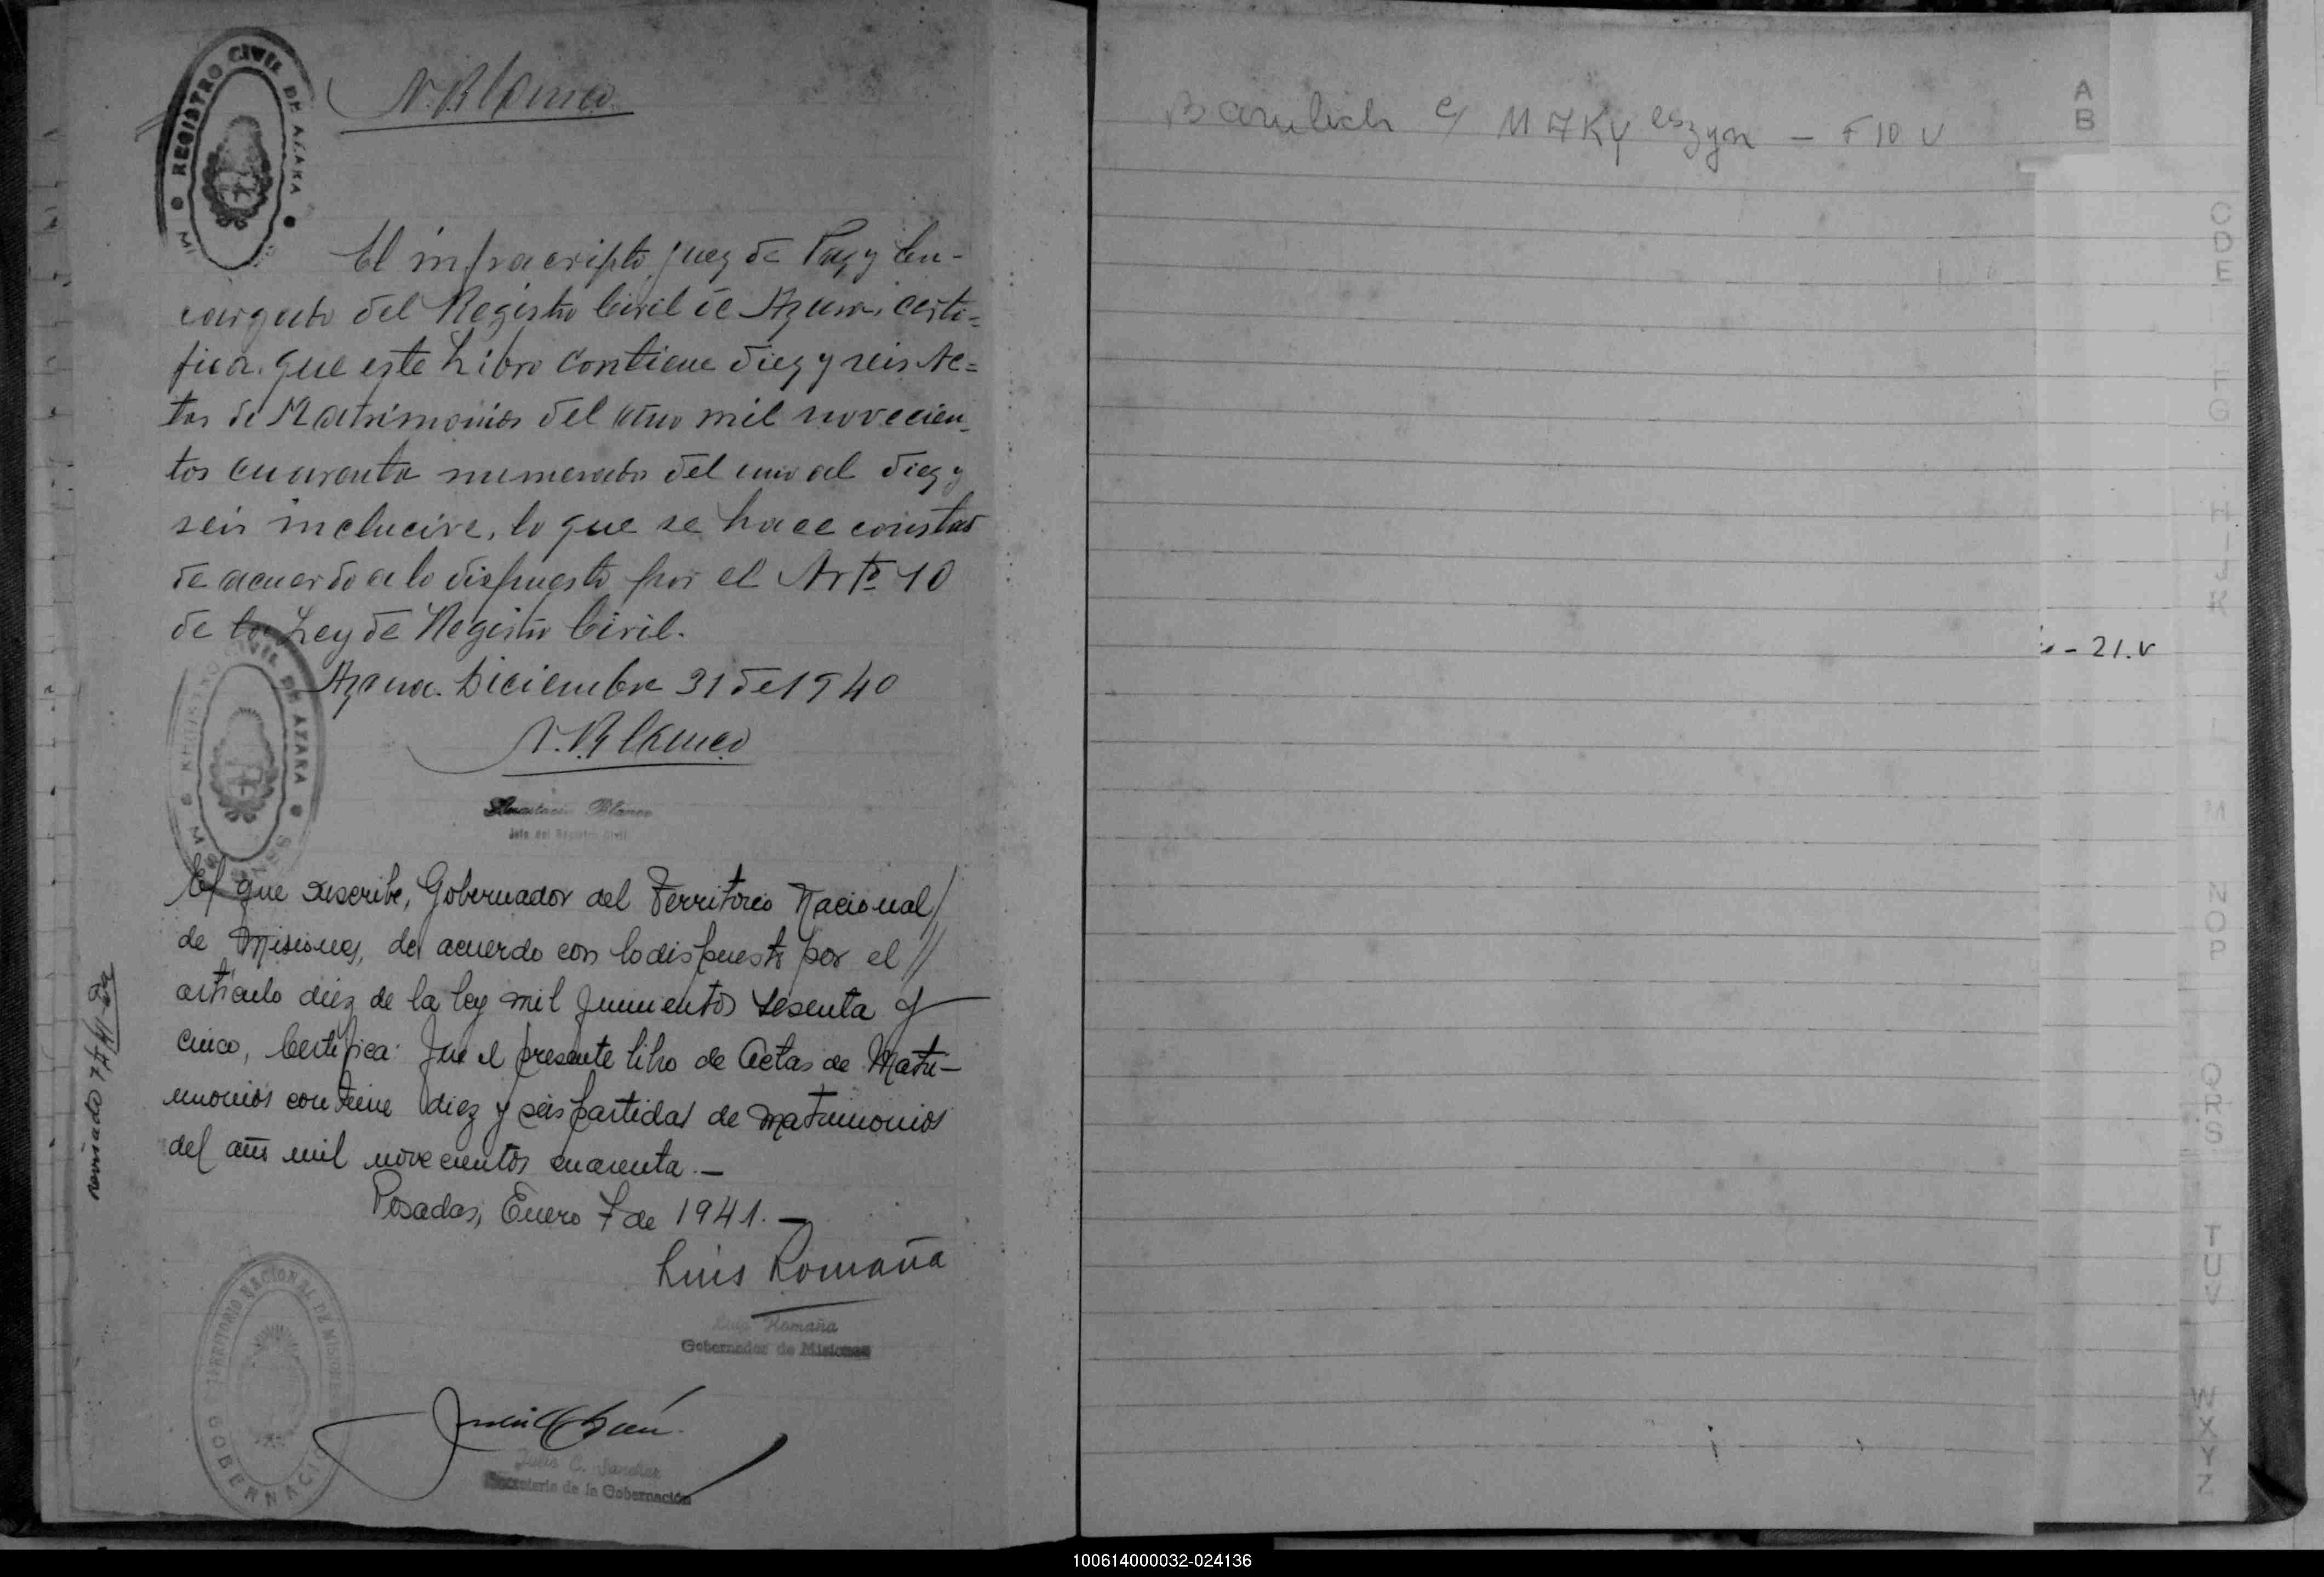 REGISTRO CIVIL DE AZARA
N. Blanco
El infracripto Juez de Paz y En-
cargado del Registro Civil de Azara, certi=
fica. que este Libro contiene diez y seis Ac=
tas de Matrimonios del año mil novecien_
tos cuarenta numerados del uno al diez y
seis inclucive, lo que se hace constar
de acuerdo a lo dispuesto por el Artº 10
de la Ley de Registro Civil.
Azara. Diciembre 31 de 1940
N. Blanco
REGISTRO CIVIL DE AZARA
Anastacio Blanco
Jefe del Registro Civil
El que suscribe, Gobernador del Territorio Nacional/
de Misiones, de acuerdo con lo dispuesto por el //
artículo diez de la ley mil quinientos sesenta y
cinco, Certifica: Que el presente libro de Actas de Matri-
monios contiene diez y seis partidas de matrimonios
del año mil novecientos cuarenta.-
Posadas, Enero 7 de 1941.-
Luis Romaña
Luis Romaña
Gobernador de Misiones
TERRITORIO NACIONAL DE MISIONES
GOBERNACION
Julio C. Sanchez
Secretario de la Gobernación
revisado 7/1/41
Barulich c/ MAKy eszyn - F 10 v
- 21.v
A
B
C
D
E
F
G
H
I
J
K
L
M
N
O
P
Q
R
S
T
U
V
W
X
Y
Z
100614000032-024136